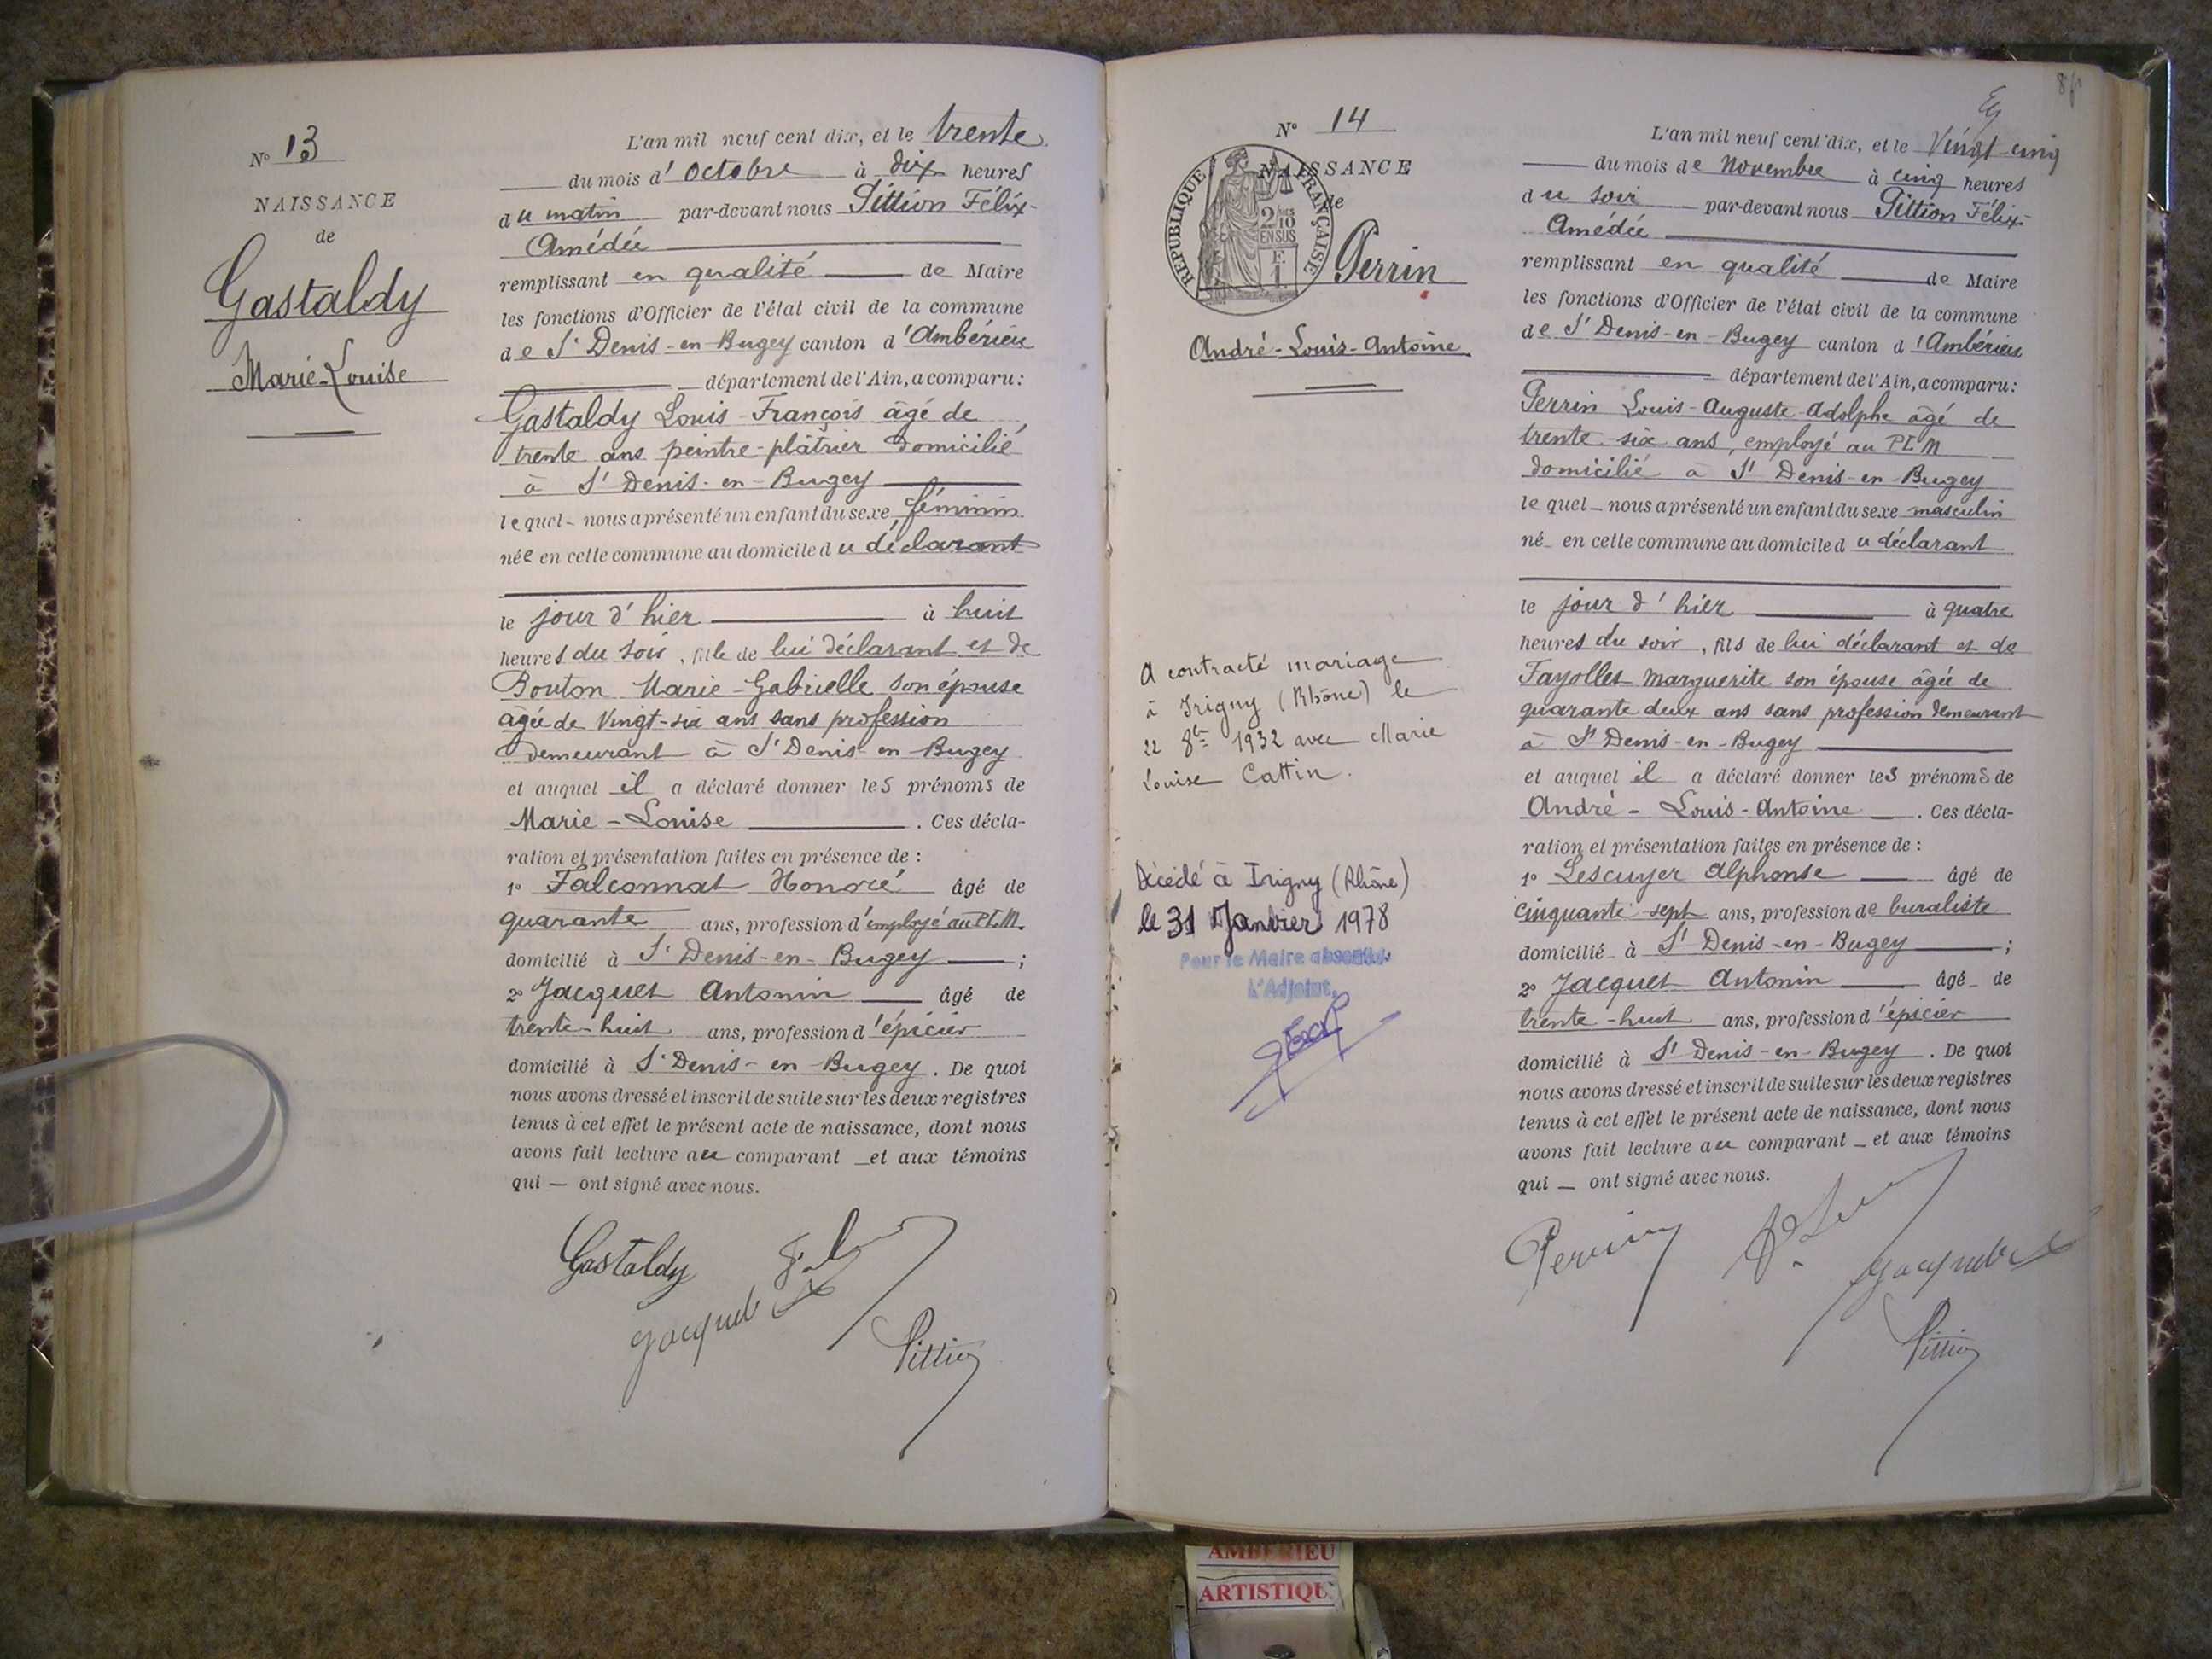 N° 13
NAISSANCE
de
Gastaldy
Marie-Louise
L'an mil neuf cent dix, et le trente
du mois d'Octobre à dix heures
du matin par-devant nous Pittion Félix-
Amédée
remplissant en qualité de Maire
les fonctions d'Officier de l'état civil de la commune
de St Denis-en-Bugey canton d'Ambérieu
département de l'Ain, a comparu :
Gastaldy Louis-François âgé de
trente ans peintre-plâtrier domicilié
à St Denis-en-Bugey
lequel nous a présenté un enfant du sexe féminin
née en cette commune au domicile du déclarant
le jour d'hier à huit
heures du soir, fille de lui déclarant et de
Bouton Marie-Gabrielle son épouse
âgée de Vingt-six ans sans profession
demeurant à St Denis-en-Bugey
et auquel il a déclaré donner les prénoms de
Marie-Louise. Ces décla-
ration et présentation faites en présence de :
1° Falconnat Honoré âgé de
quarante ans, profession d'employé au PLM.
domicilié à St Denis-en-Bugey ;
2° Jacquet Antonin âgé de
trente-huit ans, profession d'épicier
domicilié à St Denis-en-Bugey. De quoi
nous avons dressé et inscrit de suite sur les deux registres
tenus à cet effet le présent acte de naissance, dont nous
avons fait lecture au comparant et aux témoins
qui ont signé avec nous.
Gastaldy
Jacquet
Pittion
N° 14
NAISSANCE
de
REPUBLIQUE FRANÇAISE
2/10
EN SUS
F.
1.
Perrin
André-Louis-Antoine
A contracté mariage
à Irigny (Rhône) le
22 8bre 1932 avec Marie
Louise Cattin.
Décédé à Irigny (Rhône)
le 31 Janvier 1978
Pour le Maire absent
L'Adjoint,
L'an mil neuf cent dix, et le Vingt-cinq
du mois de Novembre à cinq heures
du soir par-devant nous Pittion Félix-
Amédée
remplissant en qualité de Maire
les fonctions d'Officier de l'état civil de la commune
de St Denis-en-Bugey canton d'Ambérieu
département de l'Ain, a comparu :
Perrin Louis-Auguste-Adolphe âgé de
trente-six ans, employé au PLM
domicilié à St Denis-en-Bugey
lequel nous a présenté un enfant du sexe masculin
né en cette commune au domicile du déclarant
le jour d'hier à quatre
heures du soir, fils de lui déclarant et de
Fayolles Marguerite son épouse âgée de
quarante deux ans sans profession demeurant
à St Denis-en-Bugey
et auquel il a déclaré donner les prénoms de
André-Louis-Antoine. Ces décla-
ration et présentation faites en présence de :
1° Lescuyer Alphonse âgé de
cinquante-sept ans, profession de buraliste
domicilié à St Denis-en-Bugey ;
2° Jacquet Antonin âgé de
trente-huit ans, profession d'épicier
domicilié à St Denis-en-Bugey. De quoi
nous avons dressé et inscrit de suite sur les deux registres
tenus à cet effet le présent acte de naissance, dont nous
avons fait lecture au comparant et aux témoins
qui ont signé avec nous.
Perrin
Jacquet
Pittion
AMBERIEU
ARTISTIQU